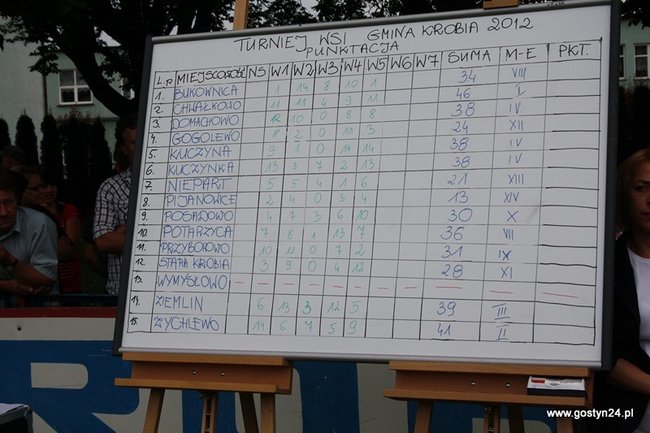 TURNIEJ WSI GMINA KROBIA 2012
PUNKTACJA
L.p MIEJSCOWOŚĆ NS W1 W2 W3 W4 W5 W6 W7 SUMA M-E PKT.
1. BUKOWNICA 1 14 8 10 1 34 VIII
2. CHWAŁKOWO 11 11 4 9 11 46 I
3. DOMACHOWO 12 10 0 8 8 38 IV
4. GOGOLEWO 8 2 0 11 3 24 XII
5. KUCZYNA 9 1 0 14 14 38 IV
6. KUCZYNKA 13 3 7 2 13 38 IV
7. NIEPART 5 5 4 1 6 21 XIII
8. PIJANOWICE 2 4 0 3 4 13 XIV
9. POSADOWO 4 7 3 6 10 30 X
10. POTARZYCA 7 8 1 13 7 36 VII
11. PRZYBOROWO 10 12 0 7 2 31 IX
12. STARA KROBIA 3 9 0 4 12 28 XI
13. WYMYSŁOWO – – – – – – – – – – –
14. ZIEMLIN 6 13 3 12 5 39 III
15. ŻYCHLEWO 14 6 7 5 9 41 II
www.gostyn24.pl